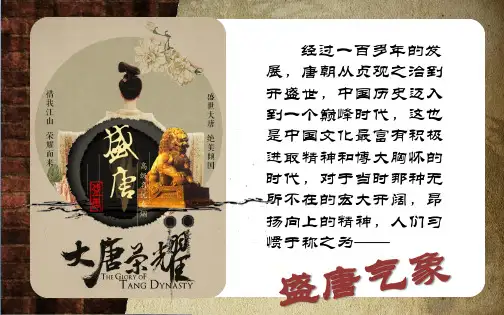 惜我江山 荣耀而来
盛世大唐 绝美倾国
盛唐
大唐荣耀
THE GLORY OF
TANG DYNASTY
经过一百多年的发
展，唐朝从贞观之治到
开盛世，中国历史迈入
到一个巅峰时代，这也
是中国文化最富有积极
进取精神和博大胸怀的
时代，对于当时那种无
所不在的宏大开阔，昂
扬向上的精神，人们习
惯于称之为——
盛唐气象